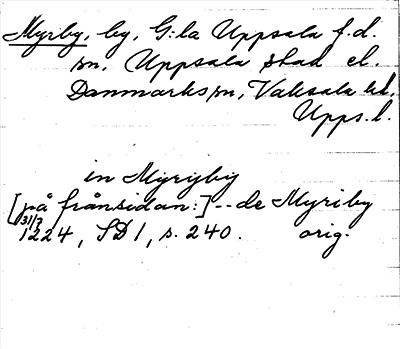 Myrby, by, G:la Uppsala f.d.
sn, Uppsala stad el.
Danmarks sn, Vaksala hd,
Upps. l.
in Myrijby
[på frånsidan:] -- de Myriby
31/7
1224, SD 1, s. 240. orig.